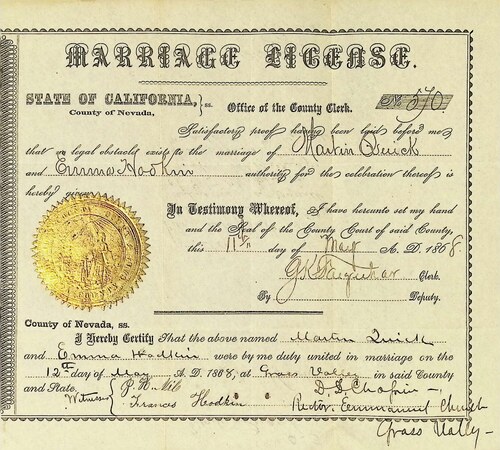 MARRIAGE LICENSE.
STATE OF CALIFORNIA, } ss. Office of the County Clerk. No. 570.
County of Nevada.
Satisfactory proof having been laid before me
that no legal obstacle exists to the marriage of Martin Quick
and Emma Hodkin authority for the celebration thereof is
hereby given
In Testimony Whereof, I have hereunto set my hand
and the Seal of the County Court of said County,
this 11th day of May A. D. 1868.
Clerk.
By Deputy.
County of Nevada, ss.
I Hereby Certify That the above named Martin Quick
and Emma Hodkin were by me duly united in marriage on the
12th day of May A. D. 1868, at Grass Valley in said County
and State.
Witnesses { Frances Hodkin
Rector Emmanuel Church
Grass Vally